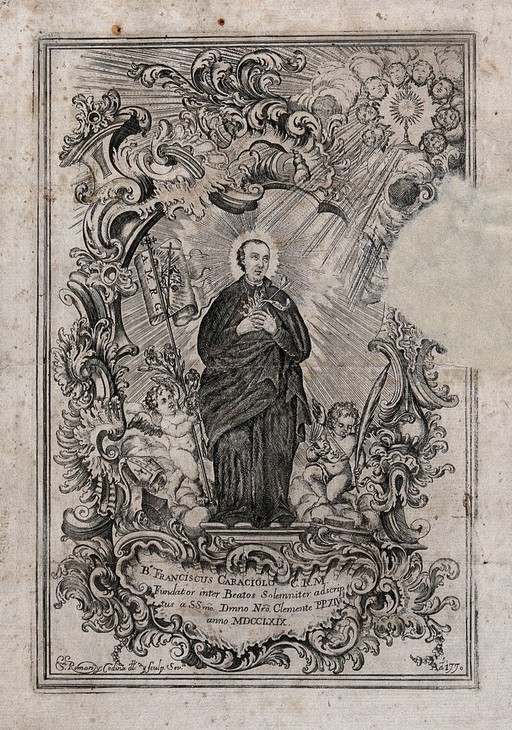 Bs FRANCISCUS CARACIOLO C.R.M.
Fundator inter Beatos Solemniter adscrip
tus a SSmo. Dmno Nrō. Clemente PP.XIV
anno MDCCLXIX.
Roman y Codina dlt. y sculp. Sevª
Ad 1770